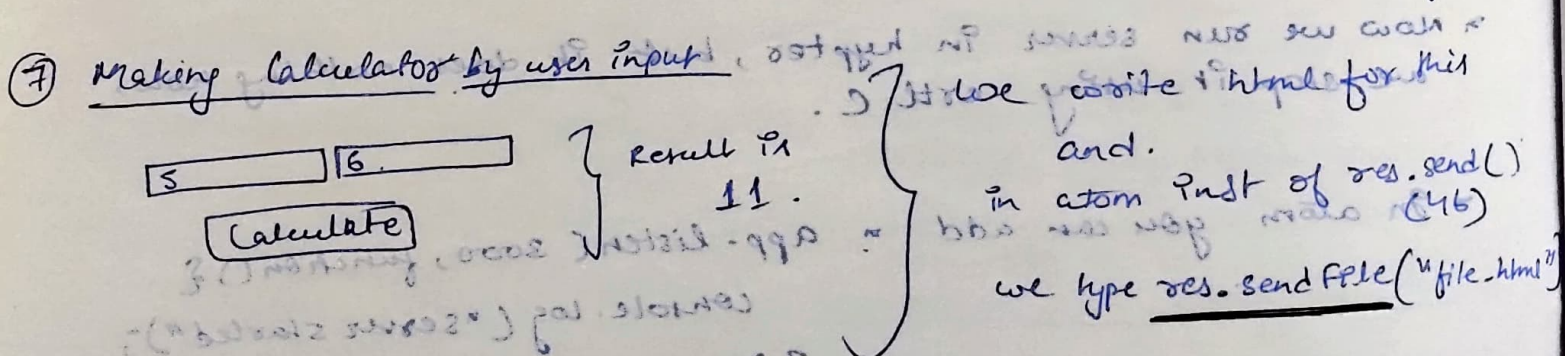 7 Making Calculator by user input,
5 6. Result is
11.
Calculate
We write html for this
and.
in atom inst of res.send()
(46)
we type res.sendFile("file.html")